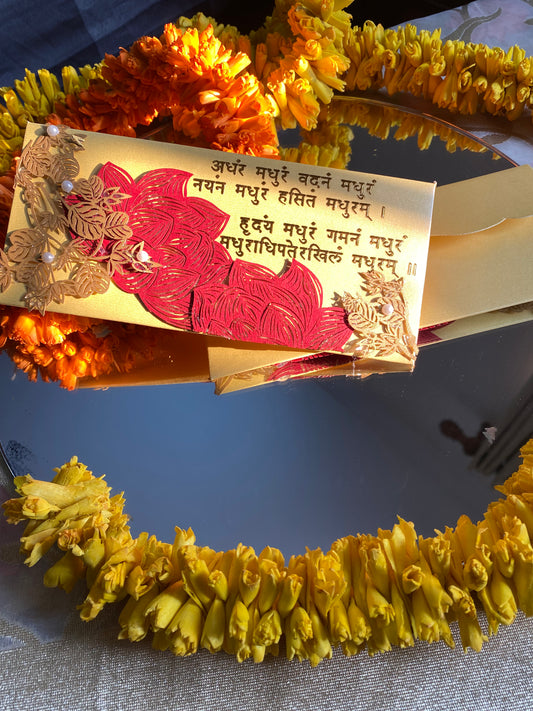 अधंर मधुरं वदनं मधुरं
नयनं मधुरं हसितं मधुरम् ।
हृदयं मधुरं गमनं मधुरं
मधुराधिपतेरखिलं मधुरम् ॥